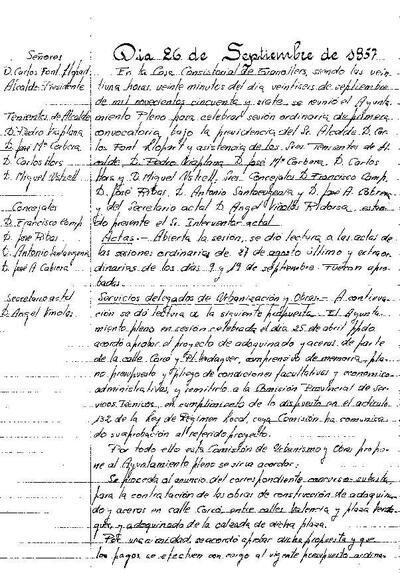 Señores
D. Carlos Font Llopart
Alcalde-Presidente
Tenientes de Alcalde
D. Pedro Viaplana
D. José Mª Corbera
D. Carlos Hors
D. Miquel Vatcell
Concejales
D. Francisco Camp
D. José Ribas
D. Antonio Santaeugenia
D. José A. Cabrera
Secretario actal
D. Angel Vinolas
Dia 26 de Septiembre de 1957
En la Casa Consistorial de Granollers, siendo las vein-
tiuna horas veinte minutos del dia veintiseis de septiembre
de mil novecientos cincuenta y siete se reunió el Ayunta-
miento Pleno para celebrar sesión ordinaria de primera
convocatoria, bajo la presidencia del Sr. Alcalde D. Car-
los Font Llopart y asistencia de los Sres. Tenientes de Al-
calde, D. Pedro Viaplana D. José Mª Corbera, D. Carlos
Hors y D. Miquel Vatcell, Sres. Concejales D. Francisco Camp,
D. José Ribas, D. Antonio Santaeugenia y D. José A. Cabrera
y del Secretario actal D. Angel Vinolas Ridorsa, estan-
do presente el Sr. Interventor actal
Actas.- Abierta la sesión, se dio lectura a las actas de
las sesiones ordinarias de 27 de agosto último y extraor-
dinarias de los dias 9 y 19 de septiembre. Fueron apro-
badas
Servicios delegados de Urbanización y Obras.- A continua-
ción se dió lectura a la siguiente propuesta. El Ayunta-
miento pleno en sesión celebrada el dia 25 de abril ppdo.
acordó aprobar el proyecto de adoquinado y aceras de parte
de la calle Corró y Pl. Verdaguer, comprensivo de memoria, pla-
no presupuesto y pliego de condiciones facultativas y economico-
administrativas, y remitirlo a la Comisión Provincial de Ser-
vicios Técnicos, en cumplimiento de lo dispuesto en el artículo
132 de la Ley de Régimen Local, cuya Comisión ha comunica-
do su aprobación al referido proyecto.
Por todo ello esta Comisión de Urbanismo y Obras propo-
ne al Ayuntamiento pleno se sirva acordar:
Se proceda al anuncio del correspondiente concurso-subasta
para la contratación de las obras de construcción de adoquina-
do y aceras en calle Corró, entre calles Valencia y plaza Verda-
guer, y adoquinado de la calzada de dicha plaza.
Por unanimidad, se acordó aprobar dicha propuesta y que
los pagos se efectuen con cargo al vigente presupuesto ordina-